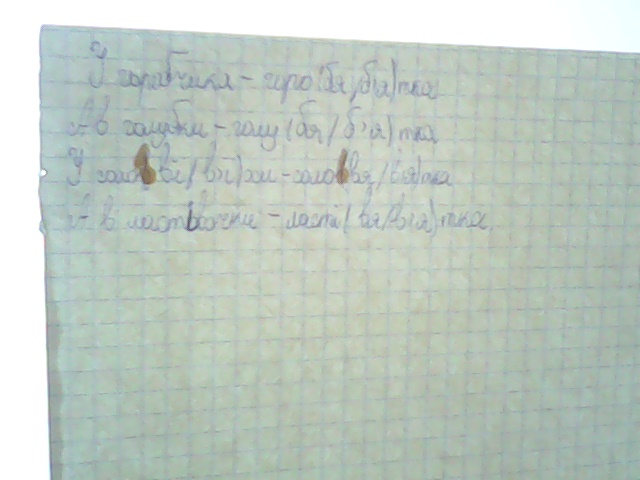 У горобчика - горо(бя/б'я)тка
А в голубки - голу(бя/б'я)тка
У соло(вї/в'ї)хи - соло(вя/в'я)тка
А в ластівочки - ласті(вя/в'я)тка.